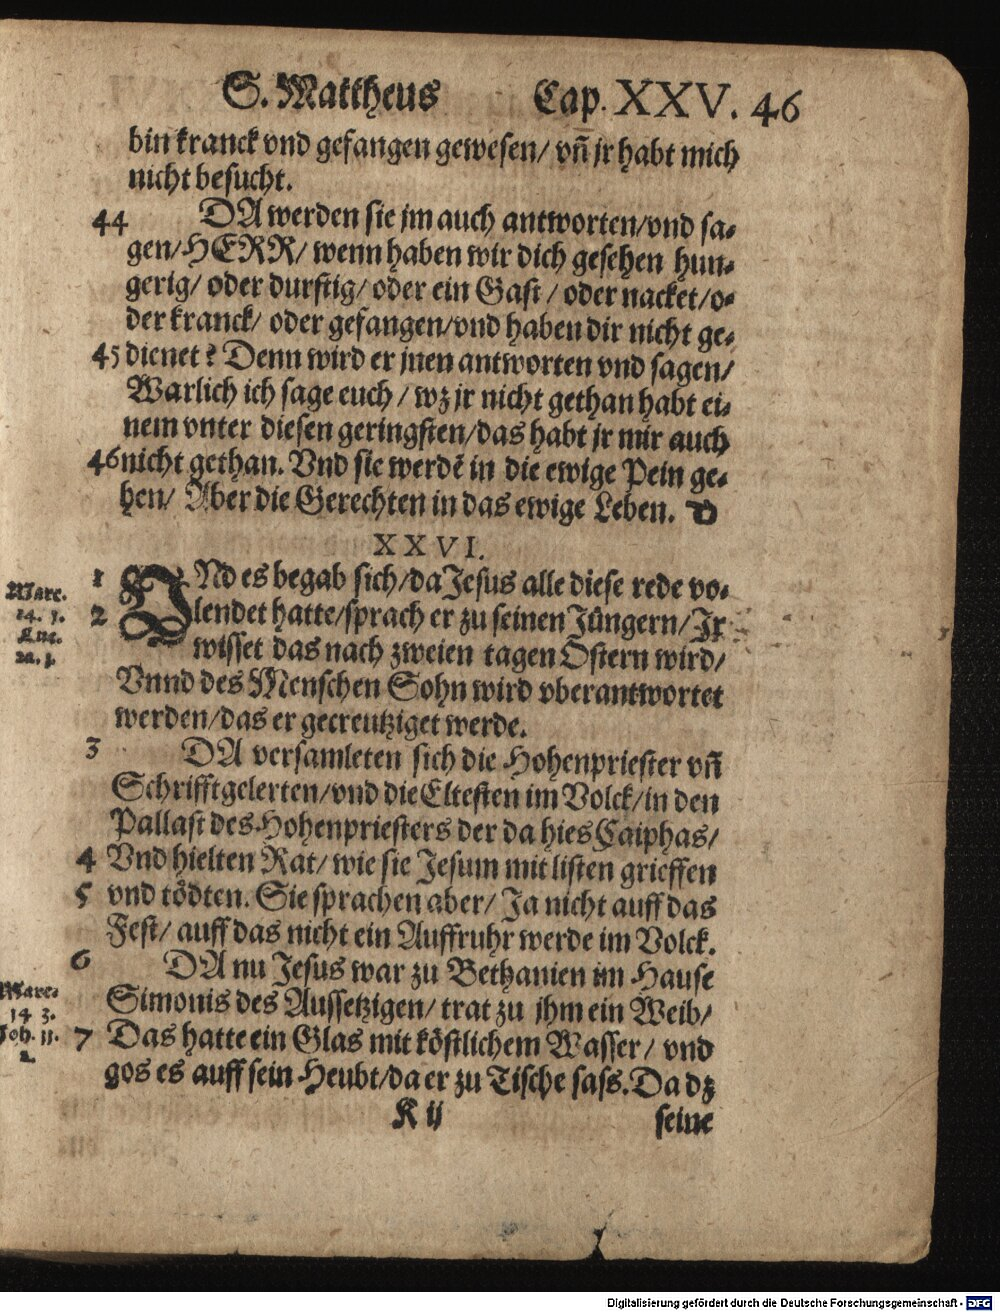 S. Mattheus Cap. XXV. 46
bin kranck vnd gefangen gewesen/ vñ jr habt mich
nicht besucht.
44 DA werden sie jm auch antworten/vnd sa-
gen/HERR/ wenn haben wir dich gesehen hun-
gerig/ oder durstig/ oder ein Gast / oder nacket/o-
der kranck/ oder gefangen/vnd haben dir nicht ge-
45 dienet? Denn wird er jnen antworten vnd sagen/
Warlich ich sage euch / wz jr nicht gethan habt ei-
nem vnter diesen geringsten/das habt jr mir auch
46 nicht gethan. Vnd sie werdē in die ewige Pein ge-
hen/ Aber die Gerechten in das ewige Leben.
XXVI.
Marc.
14. 1.
Luc.
22. 1.
1 VNd es begab sich/da Jesus alle diese rede vo-
2 lendet hatte/sprach er zu seinen Jüngern/Jr
wisset das nach zweien tagen Ostern wird/
Vnnd des Menschen Sohn wird vberantwortet
werden/das er gecreutziget werde.
3 DA versamleten sich die Hohenpriester vñ
Schrifftgelerten/vnd die Eltesten im Volck/in den
Pallast des Hohenpriesters der da hies Caiphas/
4 Vnd hielten Rat/ wie sie Jesum mit listen grieffen
5 vnd tödten. Sie sprachen aber/ Ja nicht auff das
Fest/ auff das nicht ein Auffruhr werde im Volck.
6 DA nu Jesus war zu Bethanien im Hause
Marc.
14 3.
Joh. 11.
2.
Simonis des Aussetzigen/ trat zu jhm ein Weib/
7 Das hatte ein Glas mit köstlichem Wasser/ vnd
gos es auff sein Heubt/da er zu Tische sass. Da dz
K ij seine
Digitalisierung gefördert durch die Deutsche Forschungsgemeinschaft - DFG